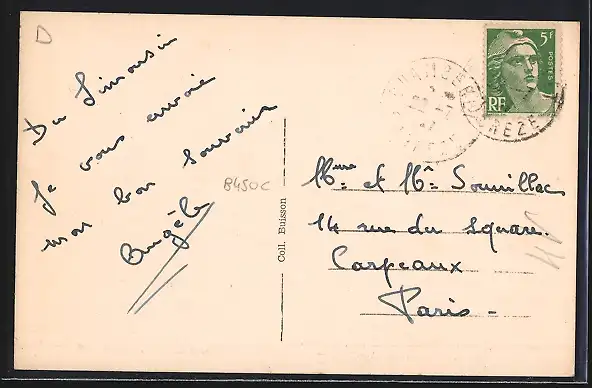 D
Du Limousin
Je vous envoie
mon bon souvenir
Angèle
B450C
Coll. Buisson
5F
POSTES
RF
RREZE
Mme et Mr Souillac
14 rue du Square
Carpeaux
Paris -